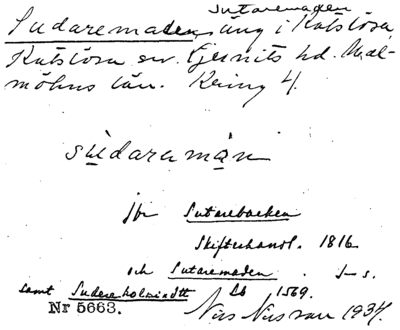 Sutaremaden
Sudaremaden, äng i Katslösa,
Katslösa sn. Ljunits hd. Mal-
möhus län. Kring 4.
südaramän
jfr Sutarebacken
Skifteshandl. 1816
och Sutaremaden
samt 1569.
Nr 5663. Nils Nilsson 1934.